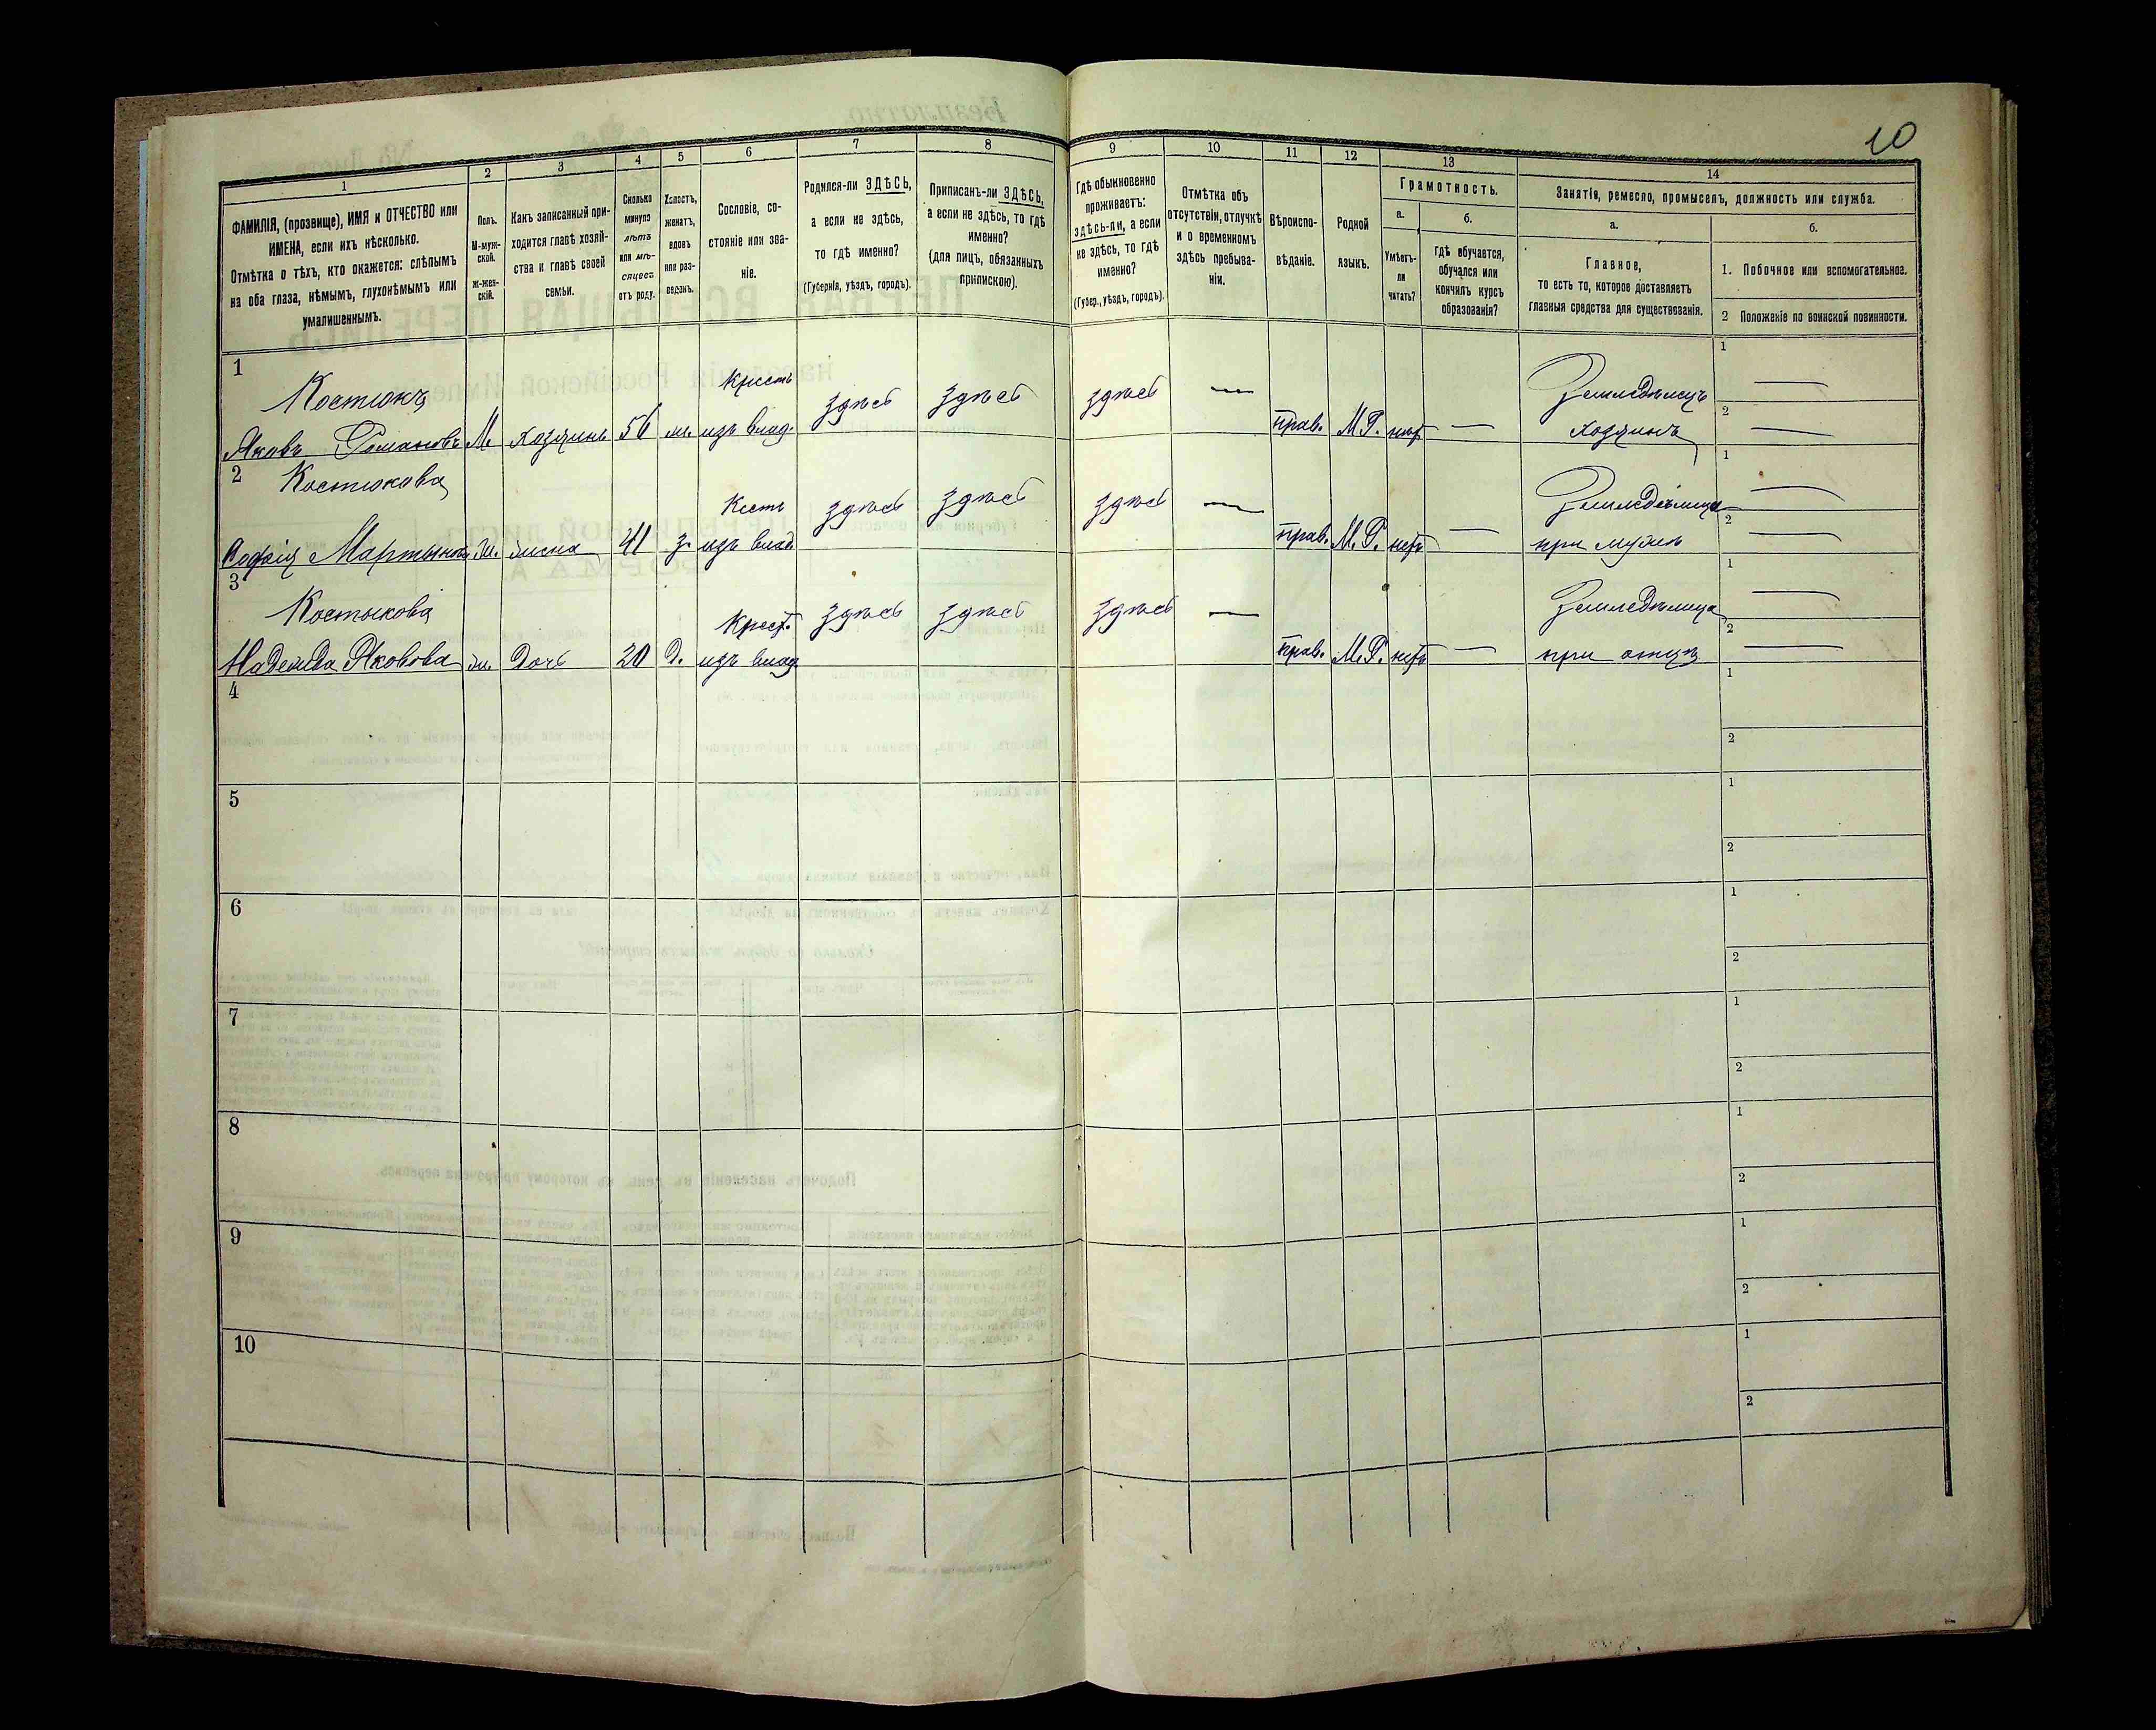 10
1 2 3 4 5 6 7 8 9 10 11 12 13 14
ФАМИЛІЯ, (прозвище), ИМЯ и ОТЧЕСТВО или
ИМЕНА, если ихъ нѣсколько.
Отмѣтка о тѣхъ, кто окажется: слѣпымъ
на оба глаза, нѣмымъ, глухонѣмымъ или
умалишеннымъ.
Полъ.
М-муж-
ской.
Ж-жен-
скій.
Какъ записанный при-
ходится главѣ хозяй-
ства и главѣ своей
семьи.
Сколько
минуло
лѣтъ
или мѣ-
сяцевъ
отъ роду.
Холостъ,
женатъ,
вдовъ
или раз-
веденъ.
Сословіе, со-
стояніе или зва-
ніе.
Родился-ли ЗДѢСЬ,
а если не здѣсь,
то гдѣ именно?
(Губернія, уѣздъ, городъ).
Приписанъ-ли ЗДѢСЬ,
а если не здѣсь, то гдѣ
именно?
(для лицъ, обязанныхъ
припискою).
Гдѣ обыкновенно
проживаетъ:
здѣсь-ли, а если
не здѣсь, то гдѣ
именно?
(Губер., уѣздъ, городъ).
Отмѣтка объ
отсутствіи, отлучкѣ
и о временномъ
здѣсь пребыва-
ніи.
Вѣроиспо-
вѣданіе.
Родной
языкъ.
Грамотность.
а.
Умѣетъ-
ли
читать?
б.
гдѣ обучается,
обучался или
кончилъ курсъ
образованія?
Занятія, ремесло, промыселъ, должность или служба.
а.
Главное,
то есть то, которое доставляетъ
главныя средства для существованія.
б.
1. Побочное или вспомогательное.
2 Положеніе по воинской повинности.
1
Костюкъ Крест здѣсь здѣсь здѣсь — Земледѣлецъ 1 —
Яковъ Романовъ М. хозяинъ 56 ж. изъ влад. прав. М.Р. нѣтъ — хозяинъ 2 —
2
Костюкова Кесть здѣсь здѣсь здѣсь — Земледѣлица 1 —
Софія Мартынова ж. жена 41 з. изъ влад прав. М.Р. нѣтъ — при мужѣ 2 —
3
Костюкова Крест. здѣсь здѣсь здѣсь — Земледѣлица 1 —
Надежда Яковова ж. дочь 20 д. изъ влад прав. М.Р. нѣтъ — при отцѣ 2 —
4 1
2
5 1
2
6 1
2
7 1
2
8 1
2
9 1
2
10 1
2